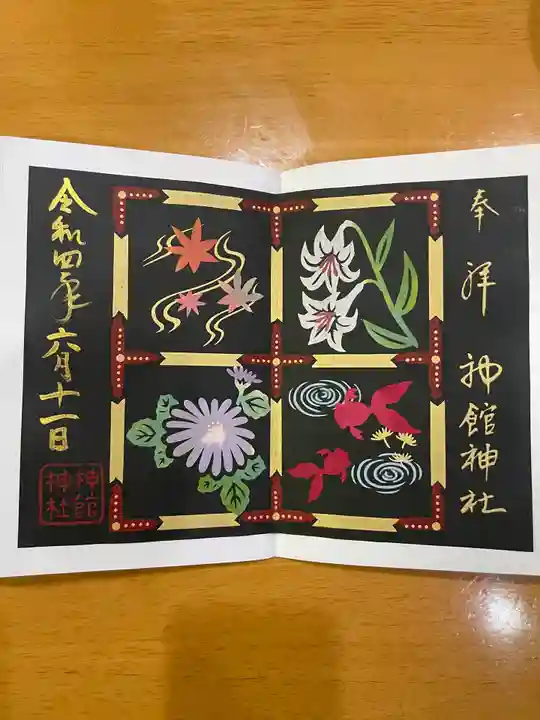 奉拝 神館神社
令和四年六月十一日
神館
神社